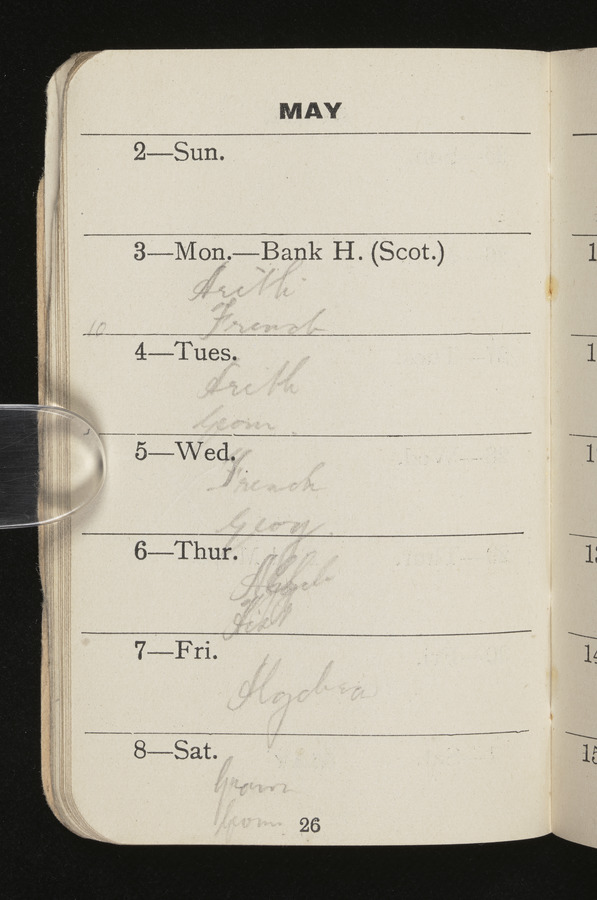 MAY
2—Sun.
3—Mon.—Bank H. (Scot.)
Arith
French
10
4—Tues.
Arith
Geom.
5—Wed.
French
Geog.
6—Thur.
Hist
7—Fri.
Algebra
8—Sat.
Gram
Com.
26
1
1
1
1
14
15